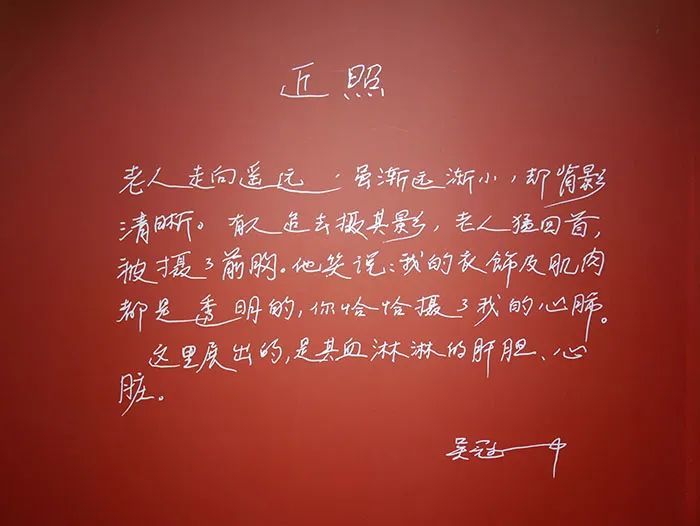 近照
老人走向遥远，虽渐远渐小，却背影
清晰。有人追去摄其影，老人猛回首，
被摄了前胸。他笑说：我的衣饰及肌肉
都是透明的，你恰恰摄了我的心肺。
这里展出的，是其血淋淋的肝胆、心
脏。
吴冠中